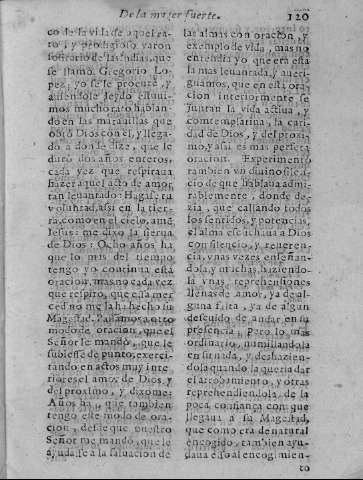 De la muger fuerte.
120
co de la vida de aquel ra-
ro, y prodigioso varon
solitario de las Indias, que
se llamò Gregorio Lo-
pez, yo se le procurè, y
assiendole leydo estuui-
mos mucho rato hablan-
do en las marauillas que
obrò Dios con el, y llega-
do a donde dize, que le
durò dos años enteros,
cada vez que respiraua
hazer aquel acto de amor
tan leuantado: Hagase tu
voluntad, assi en la tier-
ra, como en el cielo, amè
Iesus: me dixo la sierua
de Dios: Ocho años ha
que lo mis del tiempo
tengo yo continua esta
oracion, mas no cada vez
que respiro, que essa mer
ced no me la ha hecho su
Magestad. Passamos a otro
modo de oracion, que el
Señor le mandò, que le
subiesse de punto, exerci-
tando en actos muy inte
riores el amor de Dios, y
del proximo, y dixome:
Años ha, que tambien
tengo esse modo de ora
cion, desde que nuestro
Señor me mandò, que le
ayudasse a la saluacion de
las almas con oracion, y
exemplo de vida, mas no
entendia yo que era esta
la mas leuantada, y aueri-
guamos, que en esta ora-
cion interiormente se
juntan la vida actiua, y
contemplatiua, la cari-
dad de Dios, y del proxi-
mo, y assi es mas perfeta
oracion. Experimentò
tambien vn diuino silẽ-
cio de que hablaua admi-
rablemente, donde de-
zia, que callando todos
los sentidos, y potencias,
el alma escuchaua a Dios
con silencio, y reueren-
cia, vnas vezes enseñan-
dola, y muchas haziendo-
la vnas reprehensiones
llenas de amor, ya de al-
guna falta, ya de algun
descuido de andar en su
presencia, Pero lo mas
ordinario, humillandola
en su nada, y deshazien-
dola quando la queria dar
el arrobamiento, y otras
reprehendiendola, de la
poca confiança con que
llegaua a su Magestad,
que como era de natural
encogido, tambien ayu-
daua esso al encogimien-
to